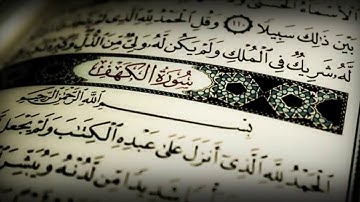 بَيْنَ ذَٰلِكَ سَبِيلًا ١١٠ وَقُلِ الْحَمْدُ لِلَّهِ الَّذِي
لَّهُ شَرِيكٌ فِي الْمُلْكِ وَلَمْ يَكُن لَّهُ وَلِيٌّ مِّنَ الذُّلِّ وَكَبِّرْهُ
سُورَةُ الْكَهْفِ
بِسْمِ اللَّهِ الرَّحْمَٰنِ الرَّحِيمِ
الْحَمْدُ لِلَّهِ الَّذِي أَنزَلَ عَلَىٰ عَبْدِهِ الْكِتَابَ وَلَمْ يَجْعَل
شَدِيدًا مِّن لَّدُنْهُ وَيُبَشِّرَ